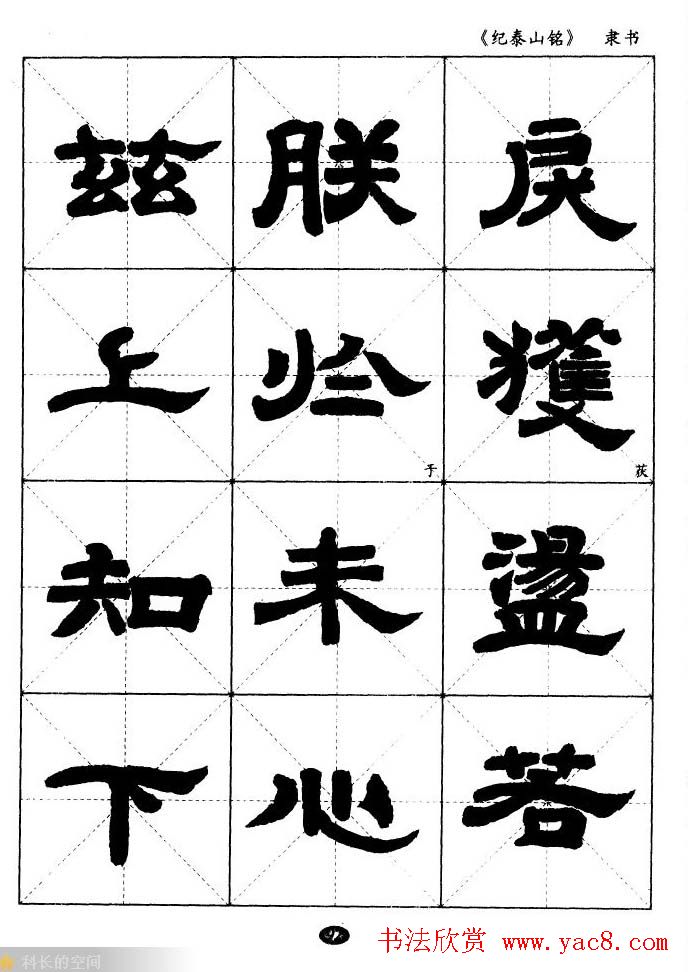 《纪泰山铭》 隶书
戾獲盪若
朕於未心
兹上知下
获
于
书法欣赏 www.yac8.com
科长的空间